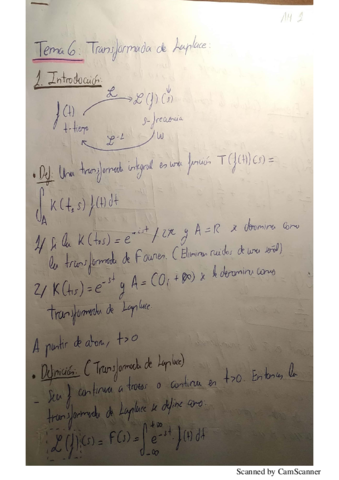 Tema 6: Transformada de Laplace.
1. Introducción
L
f(t) L(f)(s)
t-tiempo s-frecuencia
L⁻¹
• Def Una transformada integral es una función T(f(t))(s) =
∫_A K(t,s) f(t) dt
1/ Si K(t,s) = e^{-ist}/2π y A = R se denomina como
la transformada de Fourier. (Elimina ruidos de una señal)
2/ K(t,s) = e^{-st} y A = (0, +∞) se denomina como
transformada de Laplace
A partir de ahora, t>0
• Definición (Transformada de Laplace)
- Sea f continua a trozos o continua en t>0. Entonces la
transformada de Laplace se define como
L(f)(s) = F(s) = ∫_{-∞}^{+∞} e^{-st} f(t) dt
Scanned by CamScanner